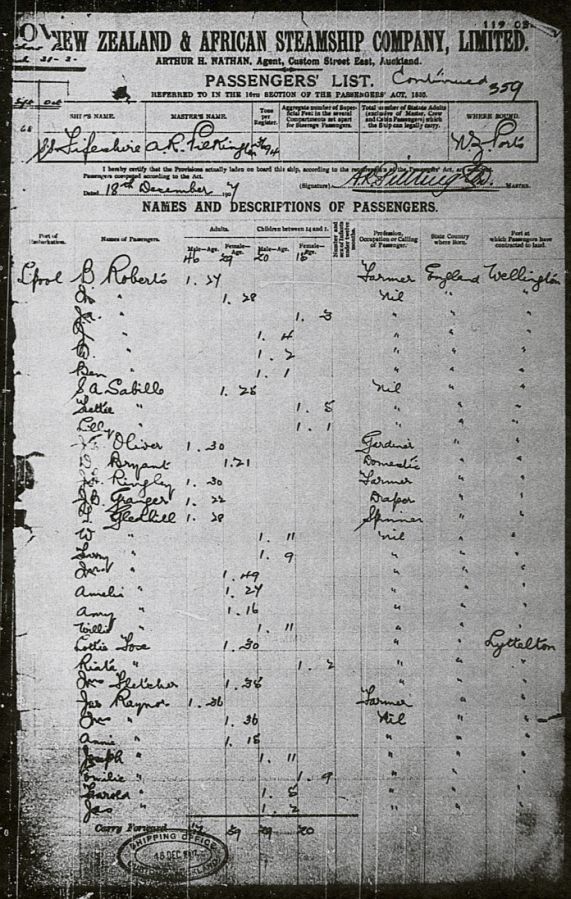 119 02
NEW ZEALAND & AFRICAN STEAMSHIP COMPANY, LIMITED.
ARTHUR H. NATHAN, Agent, Custom Street East, Auckland.
PASSENGERS' LIST. Continued 359
REFERRED TO IN THE 16TH SECTION OF THE PASSENGERS' ACT, 1855.
SHIP'S NAME. MASTER'S NAME. Tons per Register. Aggregate number of Superficial Feet in the several Compartments set apart for Steerage Passengers. Total number of Statute Adults (exclusive of Master, Crew and Cabin Passengers) which the Ship can legally carry. WHERE BOUND.
Fifeshire A.R. Pilkington NZ Ports
I hereby certify that the Provisions actually laden on board this ship, according to the requirements of the Passengers' Act, are
Passengers computed according to the Act.
Dated 18th December 1907 (Signature) MASTER.
NAMES AND DESCRIPTIONS OF PASSENGERS.
Port of Embarkation. Names of Passengers. Adults. Children between 14 and 1. Number and sex of Infants under twelve months. Profession, Occupation or Calling of Passenger. State Country where Born. Port at which Passengers have contracted to land.
Male—Age. Female—Age. Male—Age. Female—Age.
46 29 20 18
Lpool B Roberts 1. 27 Farmer England Wellington
" 1. 28 Nil " "
" 1. 3 " " "
" 1. 4 " " "
" 1. 2 " " "
Ben " 1. 1 " " "
S A Sabille 1. 28 Nil " "
Lettie " 1. 5 " " "
Lilly " 1. 1 " " "
Oliver 1. 30 Gardiner " "
Bryant 1. 21 Domestic " "
Kingley 1. 30 Farmer " "
J.B. Granger 1. 22 Draper " "
Gledhill 1. 28 Spinner " "
W " 1. 11 nil " "
" 1. 9 " " "
" 1. 49 " " "
Amelia " 1. 27 " " "
Amy " 1. 16 " " "
Willie " 1. 11 " " "
Lottie 1. 30 " " Lyttelton
" 1. 2 " " "
Mrs Fletcher 1. 38 " " "
Jas Raynor 1. 36 Farmer " "
Mrs " 1. 36 Nil " "
Annie " 1. 15 " " "
Joseph " 1. 11 " " "
Emilie " 1. 9 " " "
Harold " 1. 5 " " "
Jas " 1. 2 " " "
Carry Forward 39 29 20
SHIPPING OFFICE
DEC